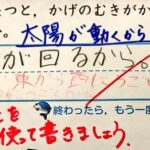 つと、かげのむきが
。太陽が動くから
が回るから。
東から西に
終わったら、もう一度
を
使って書きましょう。